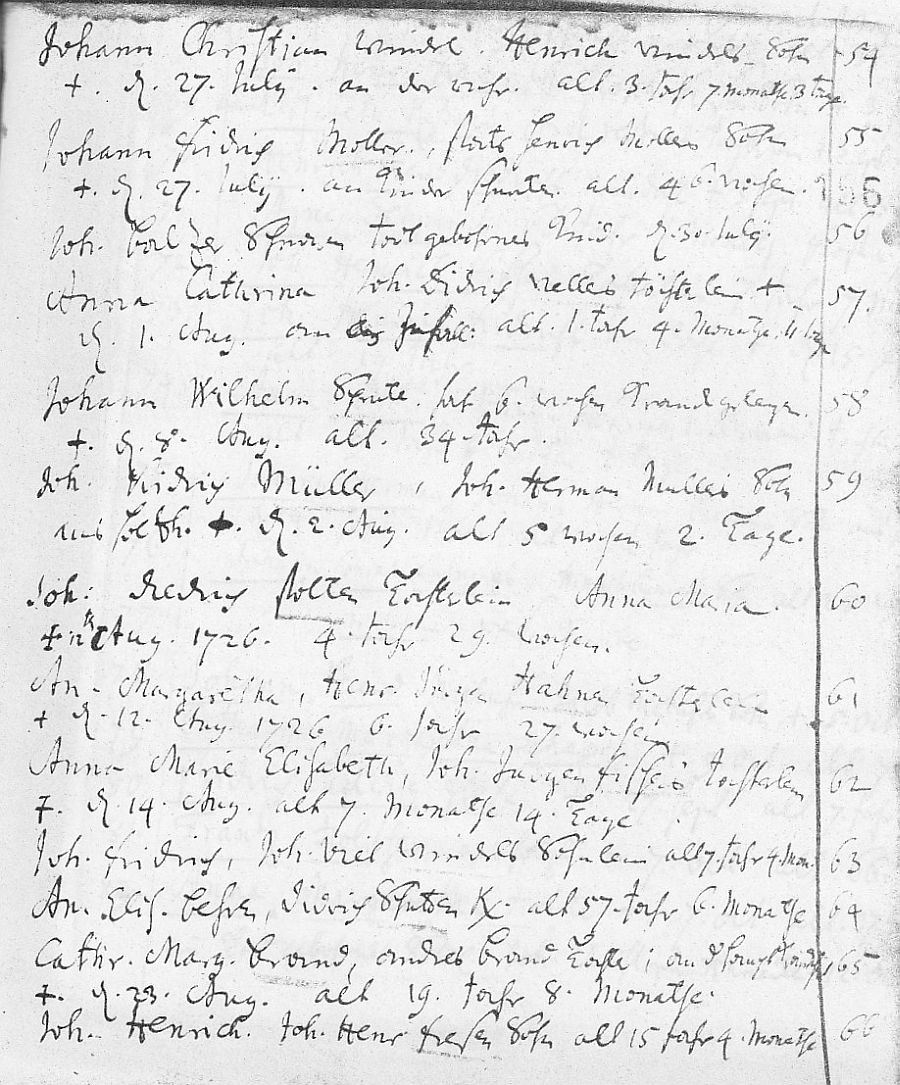 Johann Christian Windel. Henrich Windels Sohn 54
+. d. 27. July. an der ruhr. alt. 3. Jahr 7. Monathe 3 tage.
Johann Fridrich Moller., Henrich Mollers Sohn 55
+. d. 27. July. an alt. 46. wochen. 56
Joh. todtgebohrnes Kind. d. 30. July. 56
Anna Cathrina Joh. Didrich Nelles töchterlein + 57.
d. 1. Aug. am alt. 1. Jahr 4. Monathe. 11 tage
Johann Wilhelm hat 6. wochen Kranck gelegen. 58
+. d. 8. Aug. alt. 34. Jahr.
Joh. Fridrich Müller, Joh. Herman Mullers Sohn 59
aus +. d. 2. Aug. alt 5 wochen 2. Tage.
Joh. Diedrich Nolten Töchterlein Anna Maria. 60
+ Aug. 1726. 4. Jahr 29. wochen.
An. Margaretha, Henr. Jürgen Hahnen Töchterlein 61
+ d. 12. Aug. 1726 6. Jahr 27. wochen
Anna Marie Elisabeth, Joh. Jurgen töchterlein 62
+. d. 14. Aug. alt 7. Monathe 14. Tage
Joh. Fridrich, Joh. Windels Söhnlein alt 7. Jahr 4. Mon. 63
An. Elis. Didrich alt 57. Jahr 6. Monathe 64
Cathr. Marg. Brand, Andres Brand 65
+. d. 23. Aug. alt 19. Jahr 8. Monathe.
Joh. Henrich. Joh. Henr. Sohn alt 15 Jahr 4. Monathe 66